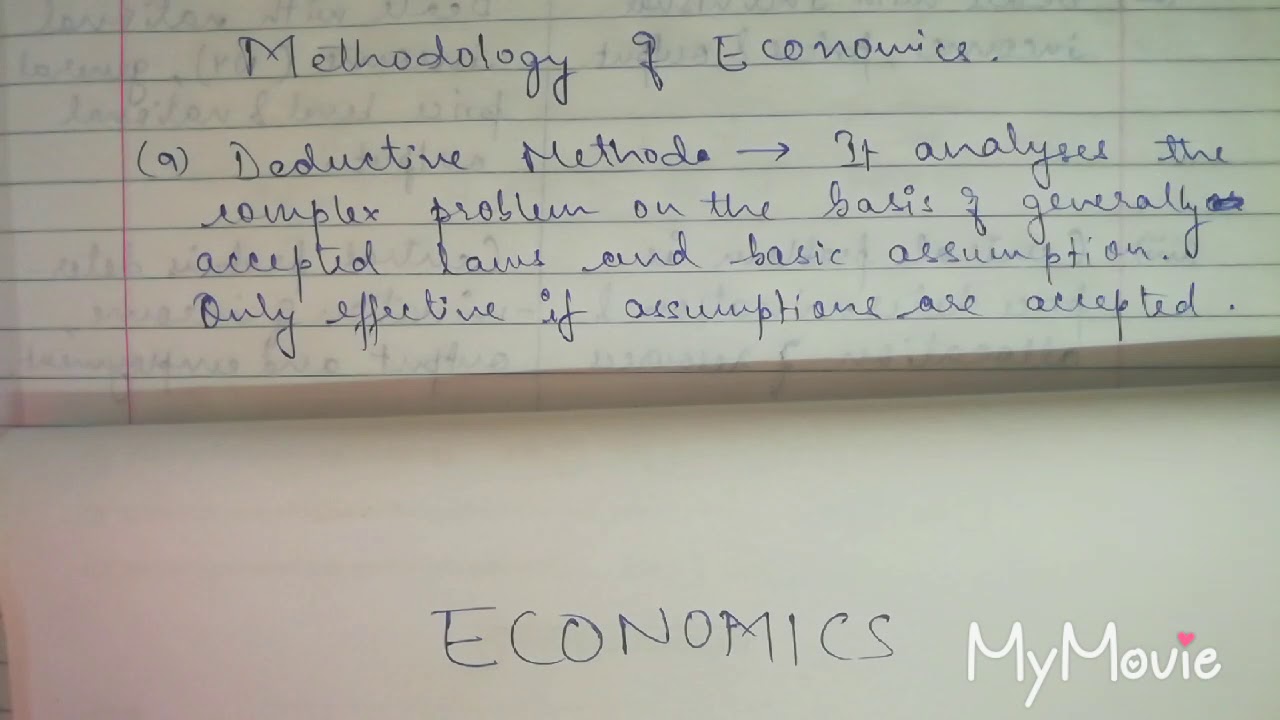 Methodology of Economics.
(a) Deductive Method → It analyses the
complex problem on the basis of generally
accepted laws and basic assumption.
Only effective if assumptions are accepted.
ECONOMICS
MyMovie